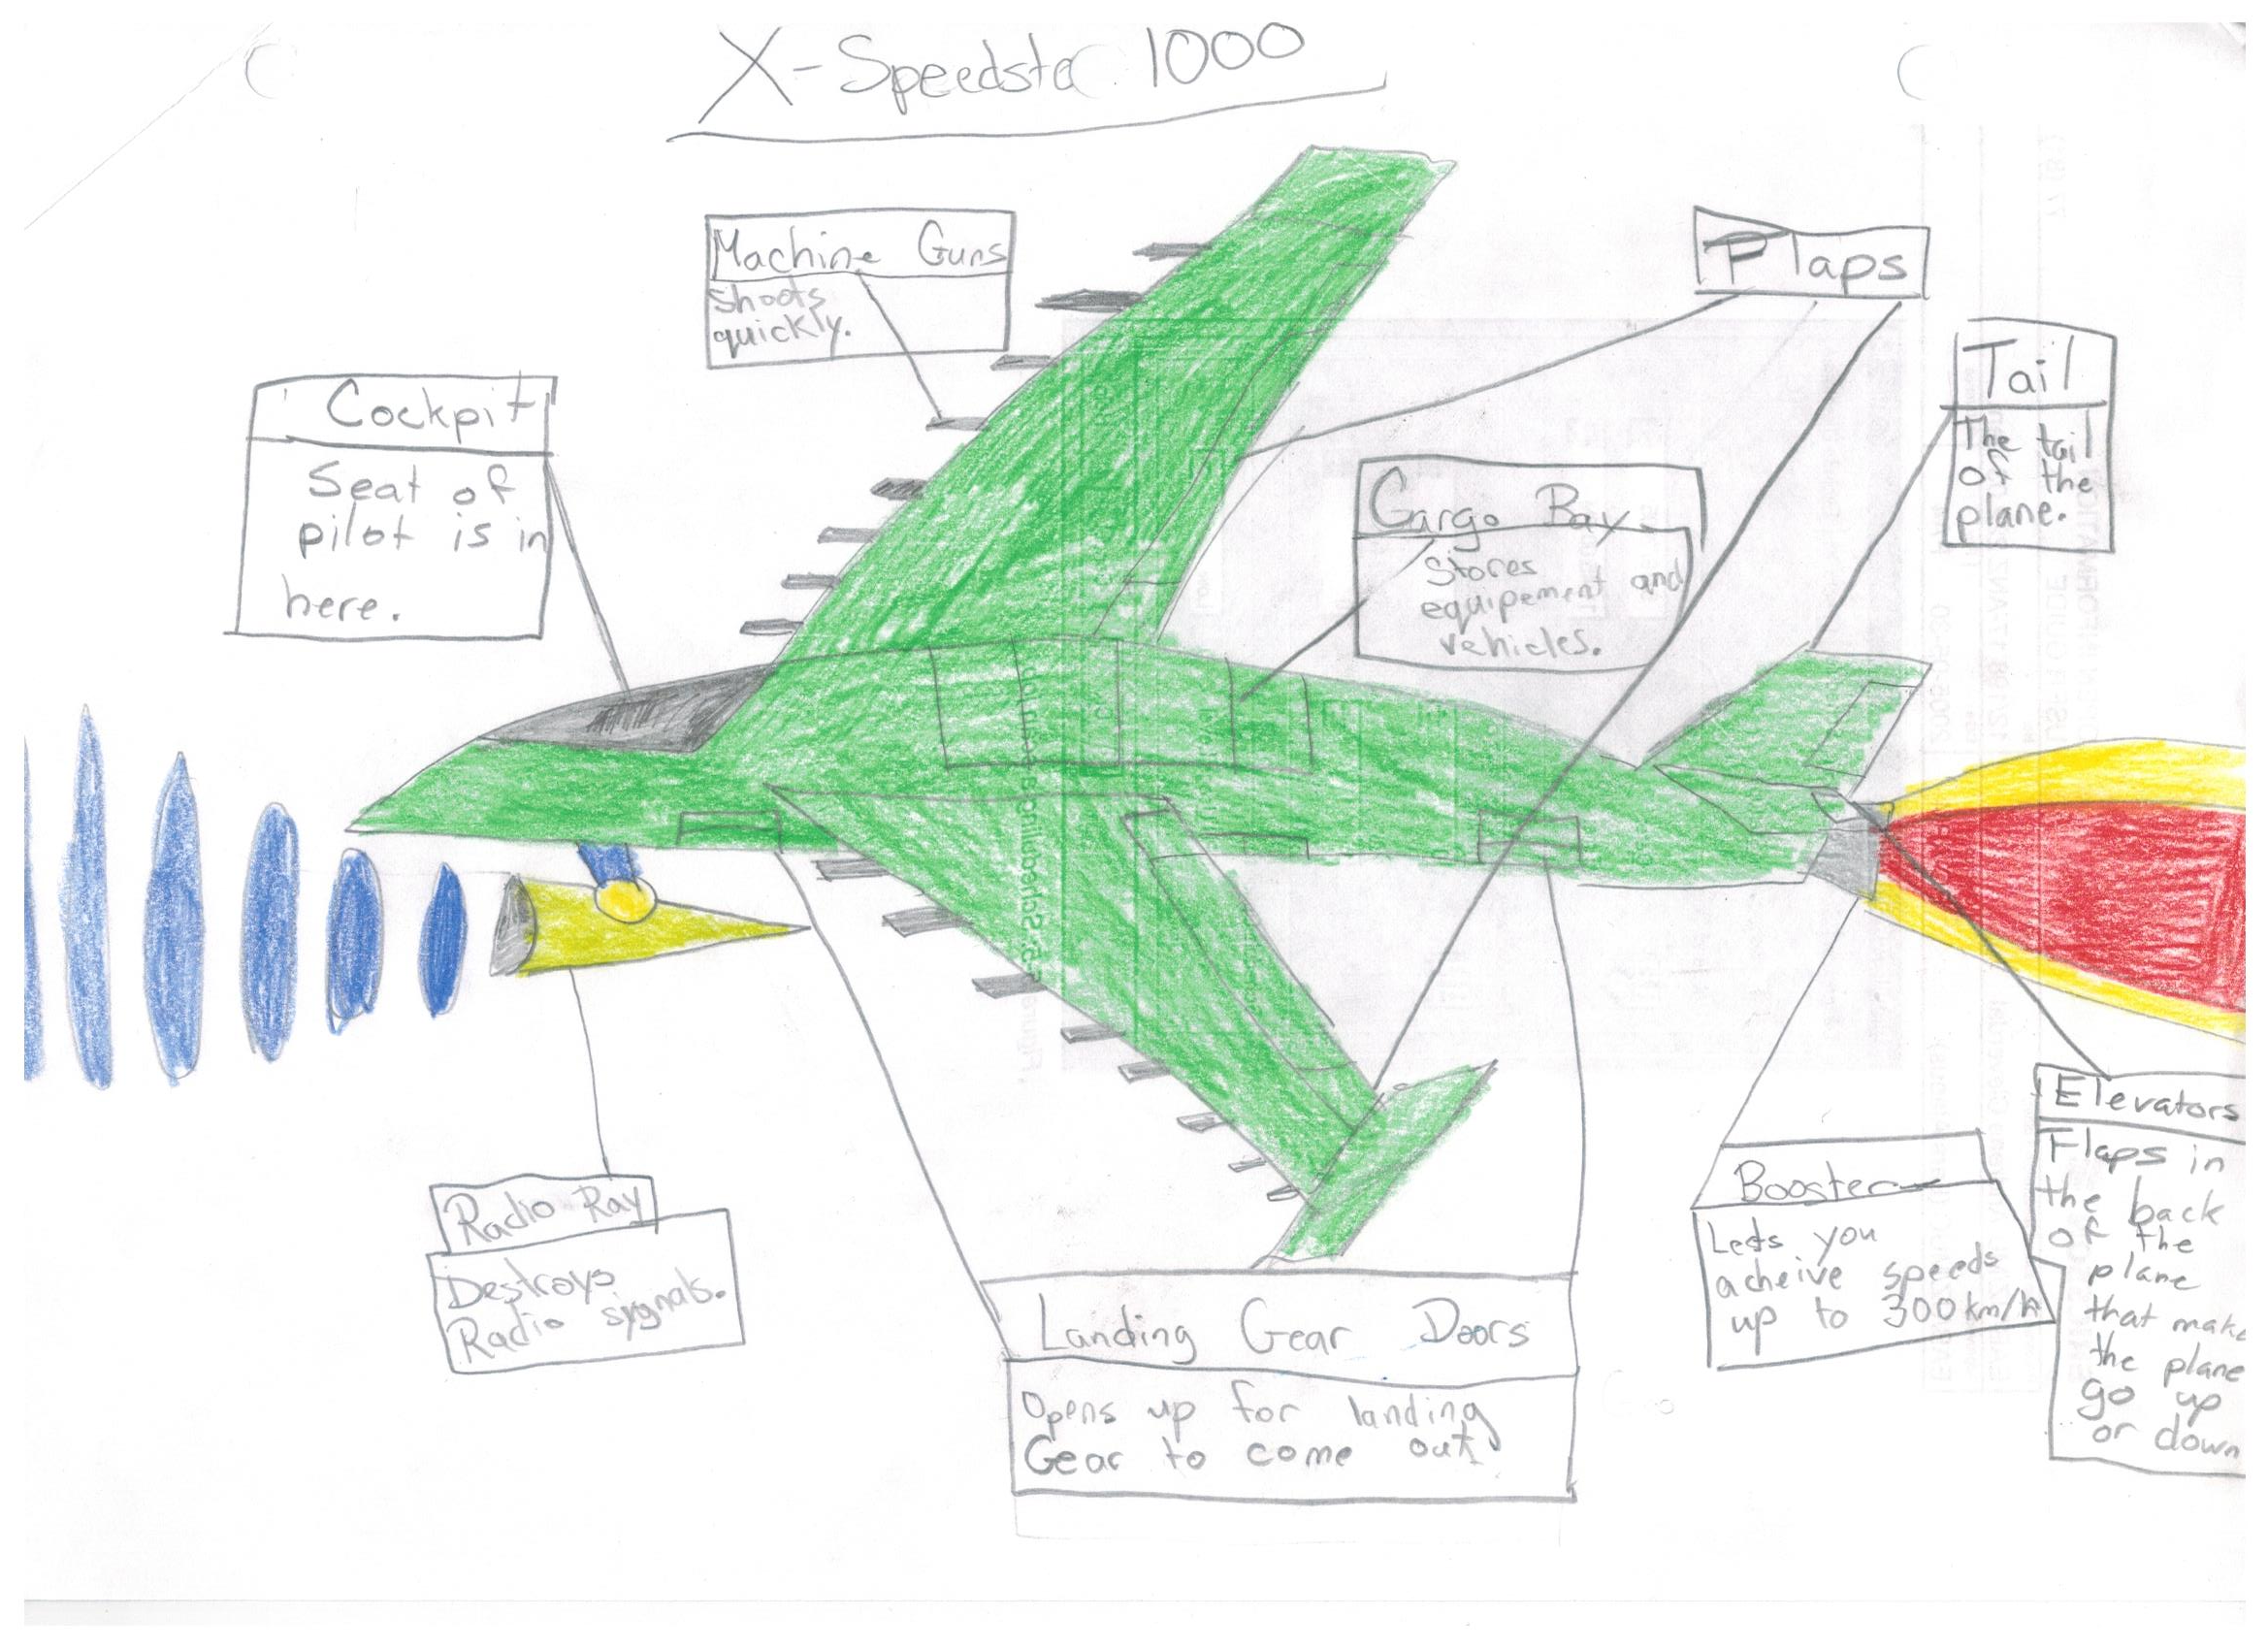 X-Speedsta 1000
Machine Guns
Shoots
quickly.
Flaps
Tail
The tail
of the
plane.
Cockpit
Seat of
pilot is in
here.
Cargo Bay
Stores
equipement and
vehicles.
Radio Ray
Destroys
Radio signals.
Landing Gear Doors
Opens up for landing
Gear to come out
Booster
Lets you
acheive speeds
up to 300km/h
Elevators
Flaps in
the back
of the
plane
that make
the plane
go up
or down